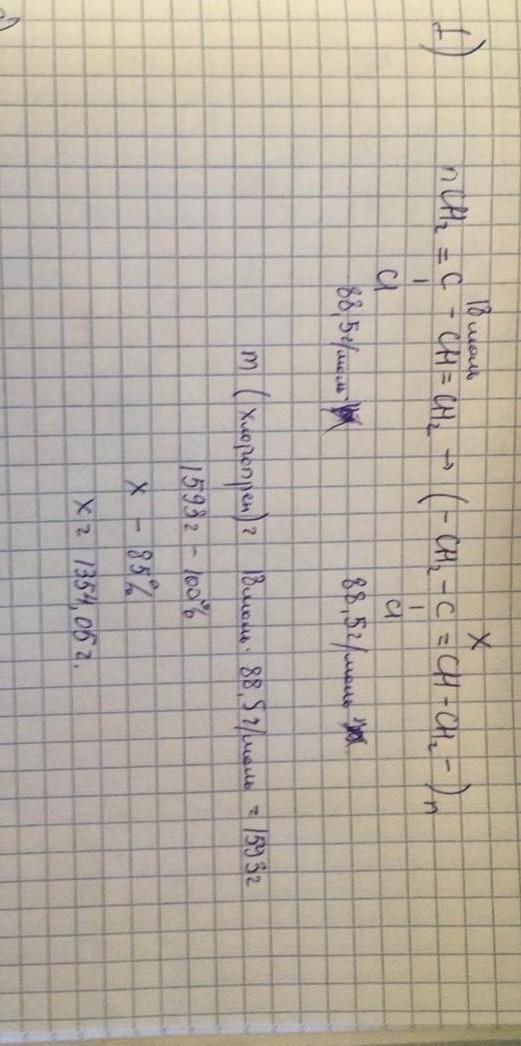 1)
18 моль X
nCH₂ = C - CH = CH₂ → (- CH₂ - C = CH - CH₂ -)n
Cl Cl
88,5 г/моль 88,5 г/моль
m (хлоропрен) = 18 моль · 88,5 г/моль = 1593 г
1593 г - 100%
X - 85%
X = 1354,05 г.